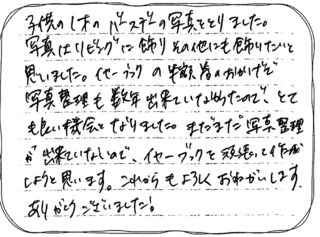 子供の1才のバースデーの写真をとりました。
写真はリビングに飾りその他にも飾りたいと
思いました。イヤーブックの半額券のおかげで
写真整理も数年出来ていなかったので、とて
も良い機会となりました。まだまだ写真整理
が出来ていないので、イヤーブックを頑張って作成
しようと思います。これからもよろしくおねがいします。
ありがとうございました!